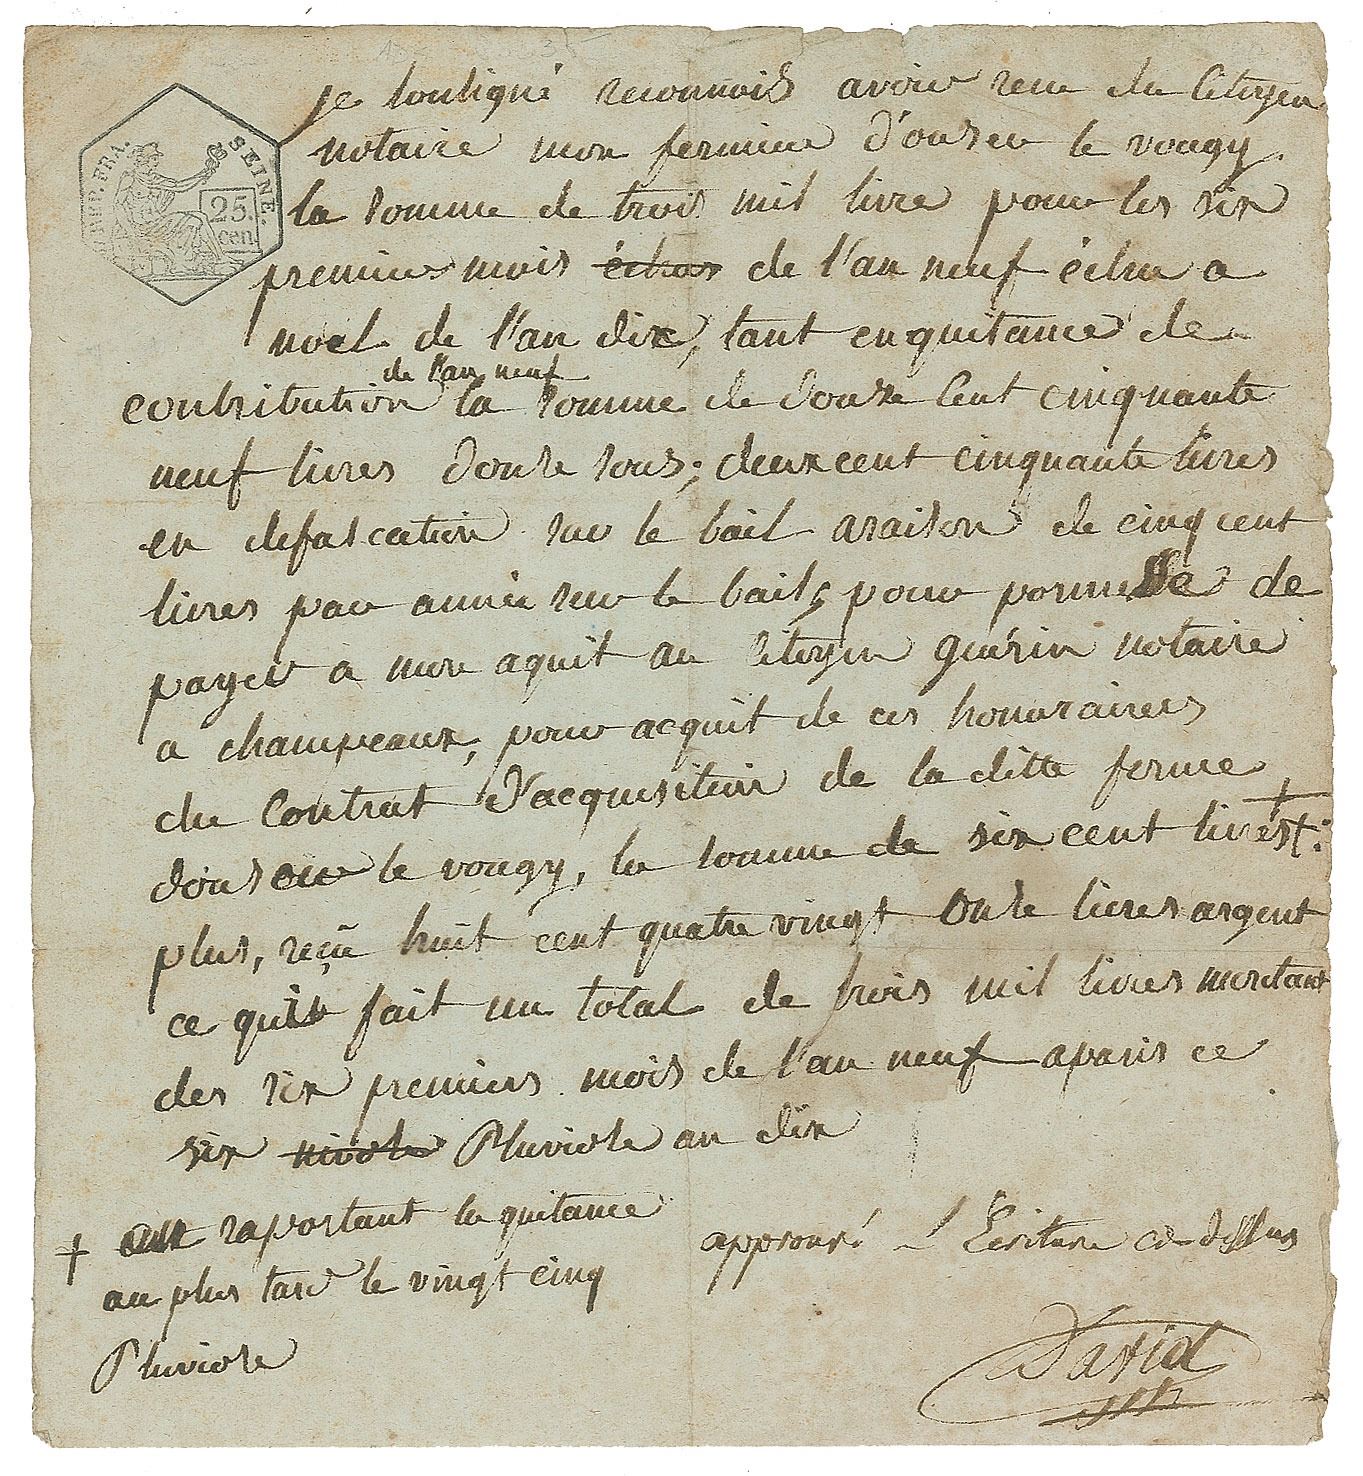 REP. FRA.
SEINE.
25.
cen.
je sousigné reconnois avoir recu du Citoyen
notaire mon fermier d'ousou le vougy.
la somme de trois mil livre pour les six
premiers mois échus de l'an neuf échu a
noel de l'an dix, tant en quitance de
de l'an neuf
contribution la somme de douze Cent cinquante
neuf livres douse sous; deux cent cinquante livres
en defalcation sur le bail araison de cinq cent
livres par année sur le bail; pour de
payer a mon aquit au Citoyen guérin notaire
a champeaux, pour acquit de ces honoraires
du Contrat d'acquisition de la ditte ferme
d'ousou le vougy, la somme de six cent livres +:
plus, reçu huit cent quatre vingt Onse livres argent
ce qui fait un total de trois mil livres montant
des six premiers mois de l'an neuf aparis ce
six nivose Pluviose an dix
+ raportant la quitance
au plus tard le vingt cinq
Pluviose
approuvé L'Ecriture ci-dessus
David